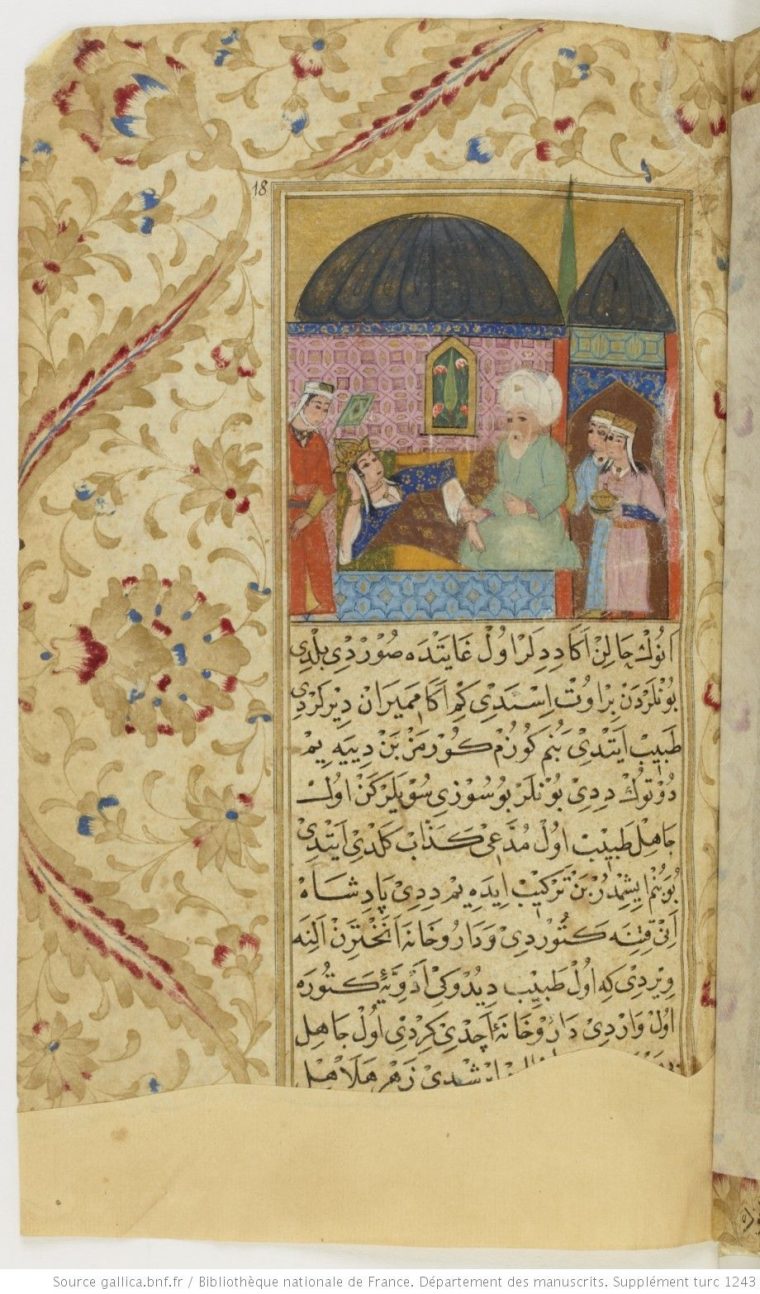 18
انوك حالن اكا ديديلر اول غايتده صوردی بلدی
بونلردن بر اوت استدی كم اكا مميران ديرلردی
طبيب ايتدی بنم كوزم كورمز بن دييه يم
دوتوك ددی بونلر بو سوزی سويلركن اول
جاهل طبيب اول مدعی كذاب كلدی ايتدی
بو بنم ايشمدر بن تركيب ايده يم ددی پادشاه
انی قتنه كتوردی و داروخانه انختارن النه
ويردی كه اول طبيب ديدوكی ادويه يی كتوره
اول واردی داروخانه اچدی كردی اول جاهل
ايرشدی زهر هلاهل
Source gallica.bnf.fr / Bibliothèque nationale de France. Département des manuscrits. Supplément turc 1243